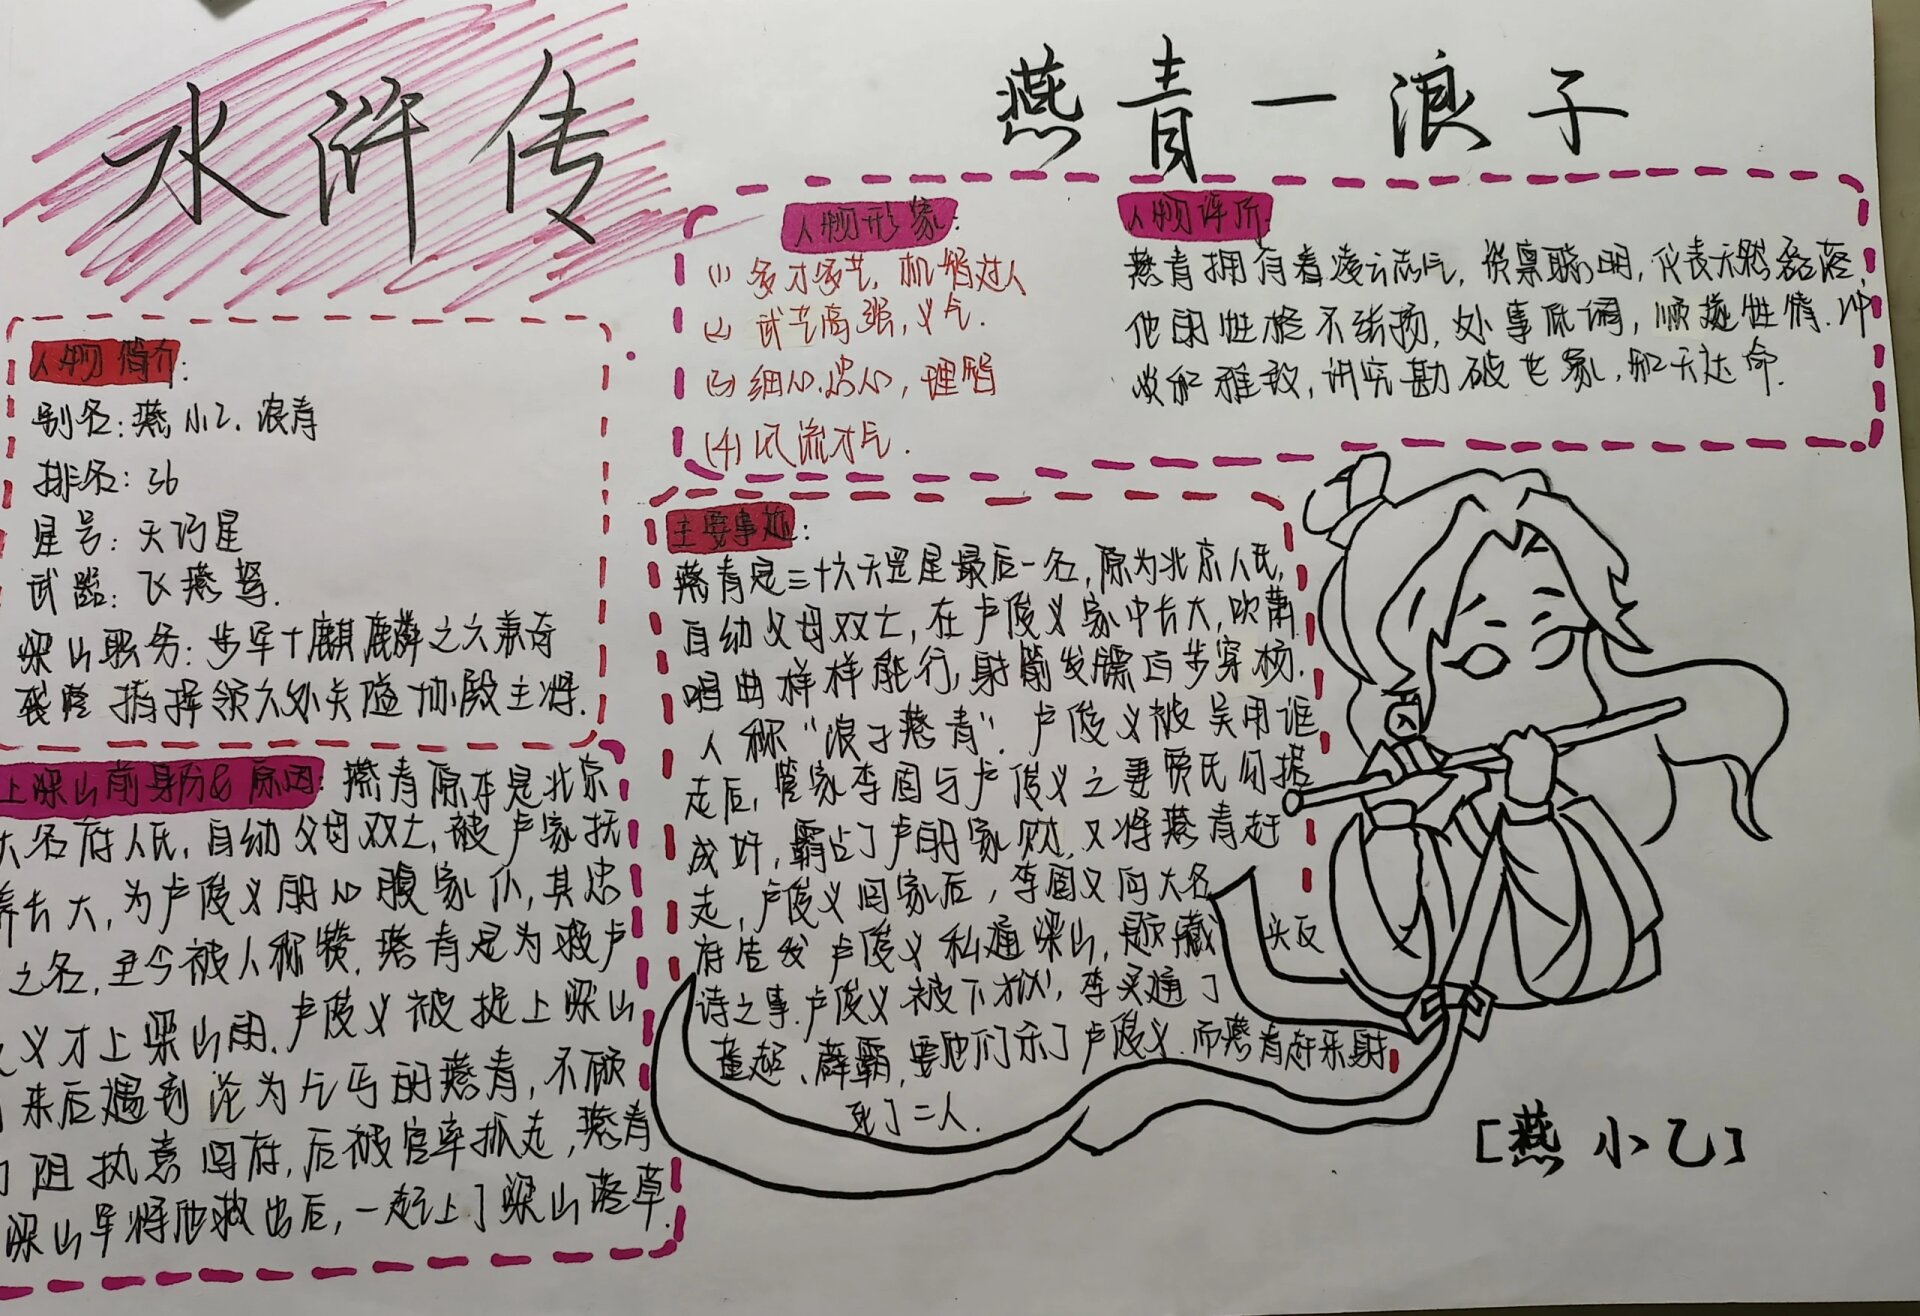 水浒传
燕青一浪子
人物简介:
别名:燕小乙、浪青
排名:36
星号:天巧星
武器:飞燕弩.
梁山职务:步军十麒麟之六兼奇
指挥领六外关隘协殿主将.
上梁山前身份&原因:燕青原本是北京
大名府人氏,自幼父母双亡,被卢家抚
养长大,为卢俊义的心腹家仆,其忠
之名,至今被人称赞.燕青是为救卢
义才上梁山的.卢俊义被捉上梁山
来后遇到沦为乞丐的燕青,不顾
阻执意回府,后被官率抓走,燕青
梁山军将他救出后,一起上了梁山落草.
人物形象:
(1)多才多艺,机智过人
(2)武艺高强,义气.
(3)细心.忠心,理智
(4)风流才气.
人物评价:
燕青拥有着凌云志气,资禀聪明,仪表天然磊落,
他的性格不张扬,处事低调,顺遂性情.冲
淡和雅致,讲究勘破世家,知天达命.
主要事迹:
燕青是三十六天罡星最后一名,原为北京人氏,
自幼父母双亡,在卢俊义家中长大,吹萧
唱曲样样能行,射箭发镖百步穿杨.
人称“浪子燕青”.卢俊义被吴用诓
走后,管家李固与卢俊义之妻贾氏勾搭
成奸,霸占了卢的家财,又将燕青赶
走,卢俊义回家后,李固又向大名
府告发卢俊义私通梁山,题藏头反
诗之事.卢俊义被下狱,李买通了
董超、薛霸,要他们杀了卢俊义.而燕青赶来射
死了二人.
[燕小乙]